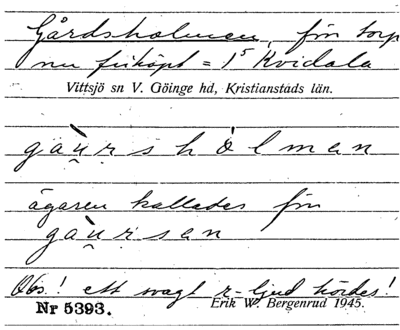 Gårdsholmen, förr torp
nu friköpt = 1⁵ Kvidala
Vittsjö sn V. Göinge hd, Kristianstads län.
ga̱ṷ̀rshȯlman
ägaren kallades förr
gaṷ̀rsen
Obs! ett svagt r-ljud hördes!
Nr 5393. Erik W. Bergenrud 1945.